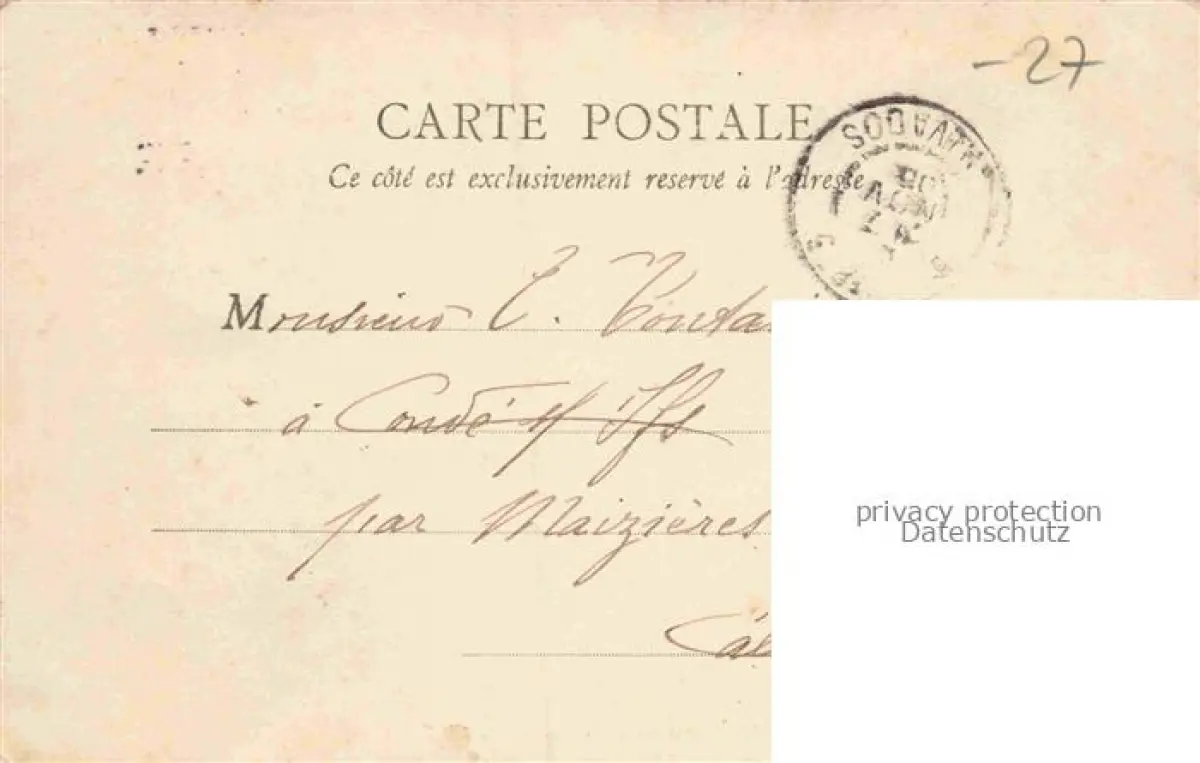 -27
CARTE POSTALE
Ce côté est exclusivement reservé à l'adresse
CALVADOS
Monsieur E.
à Condé s/ Iffs
par Maizières
privacy protection
Datenschutz